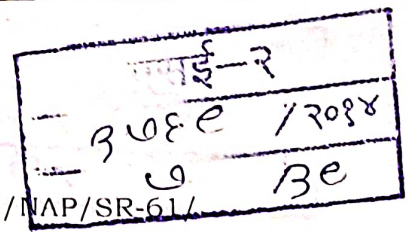 ई-२
३७६९ /२०१४
७ /३९
/NAP/SR-61/